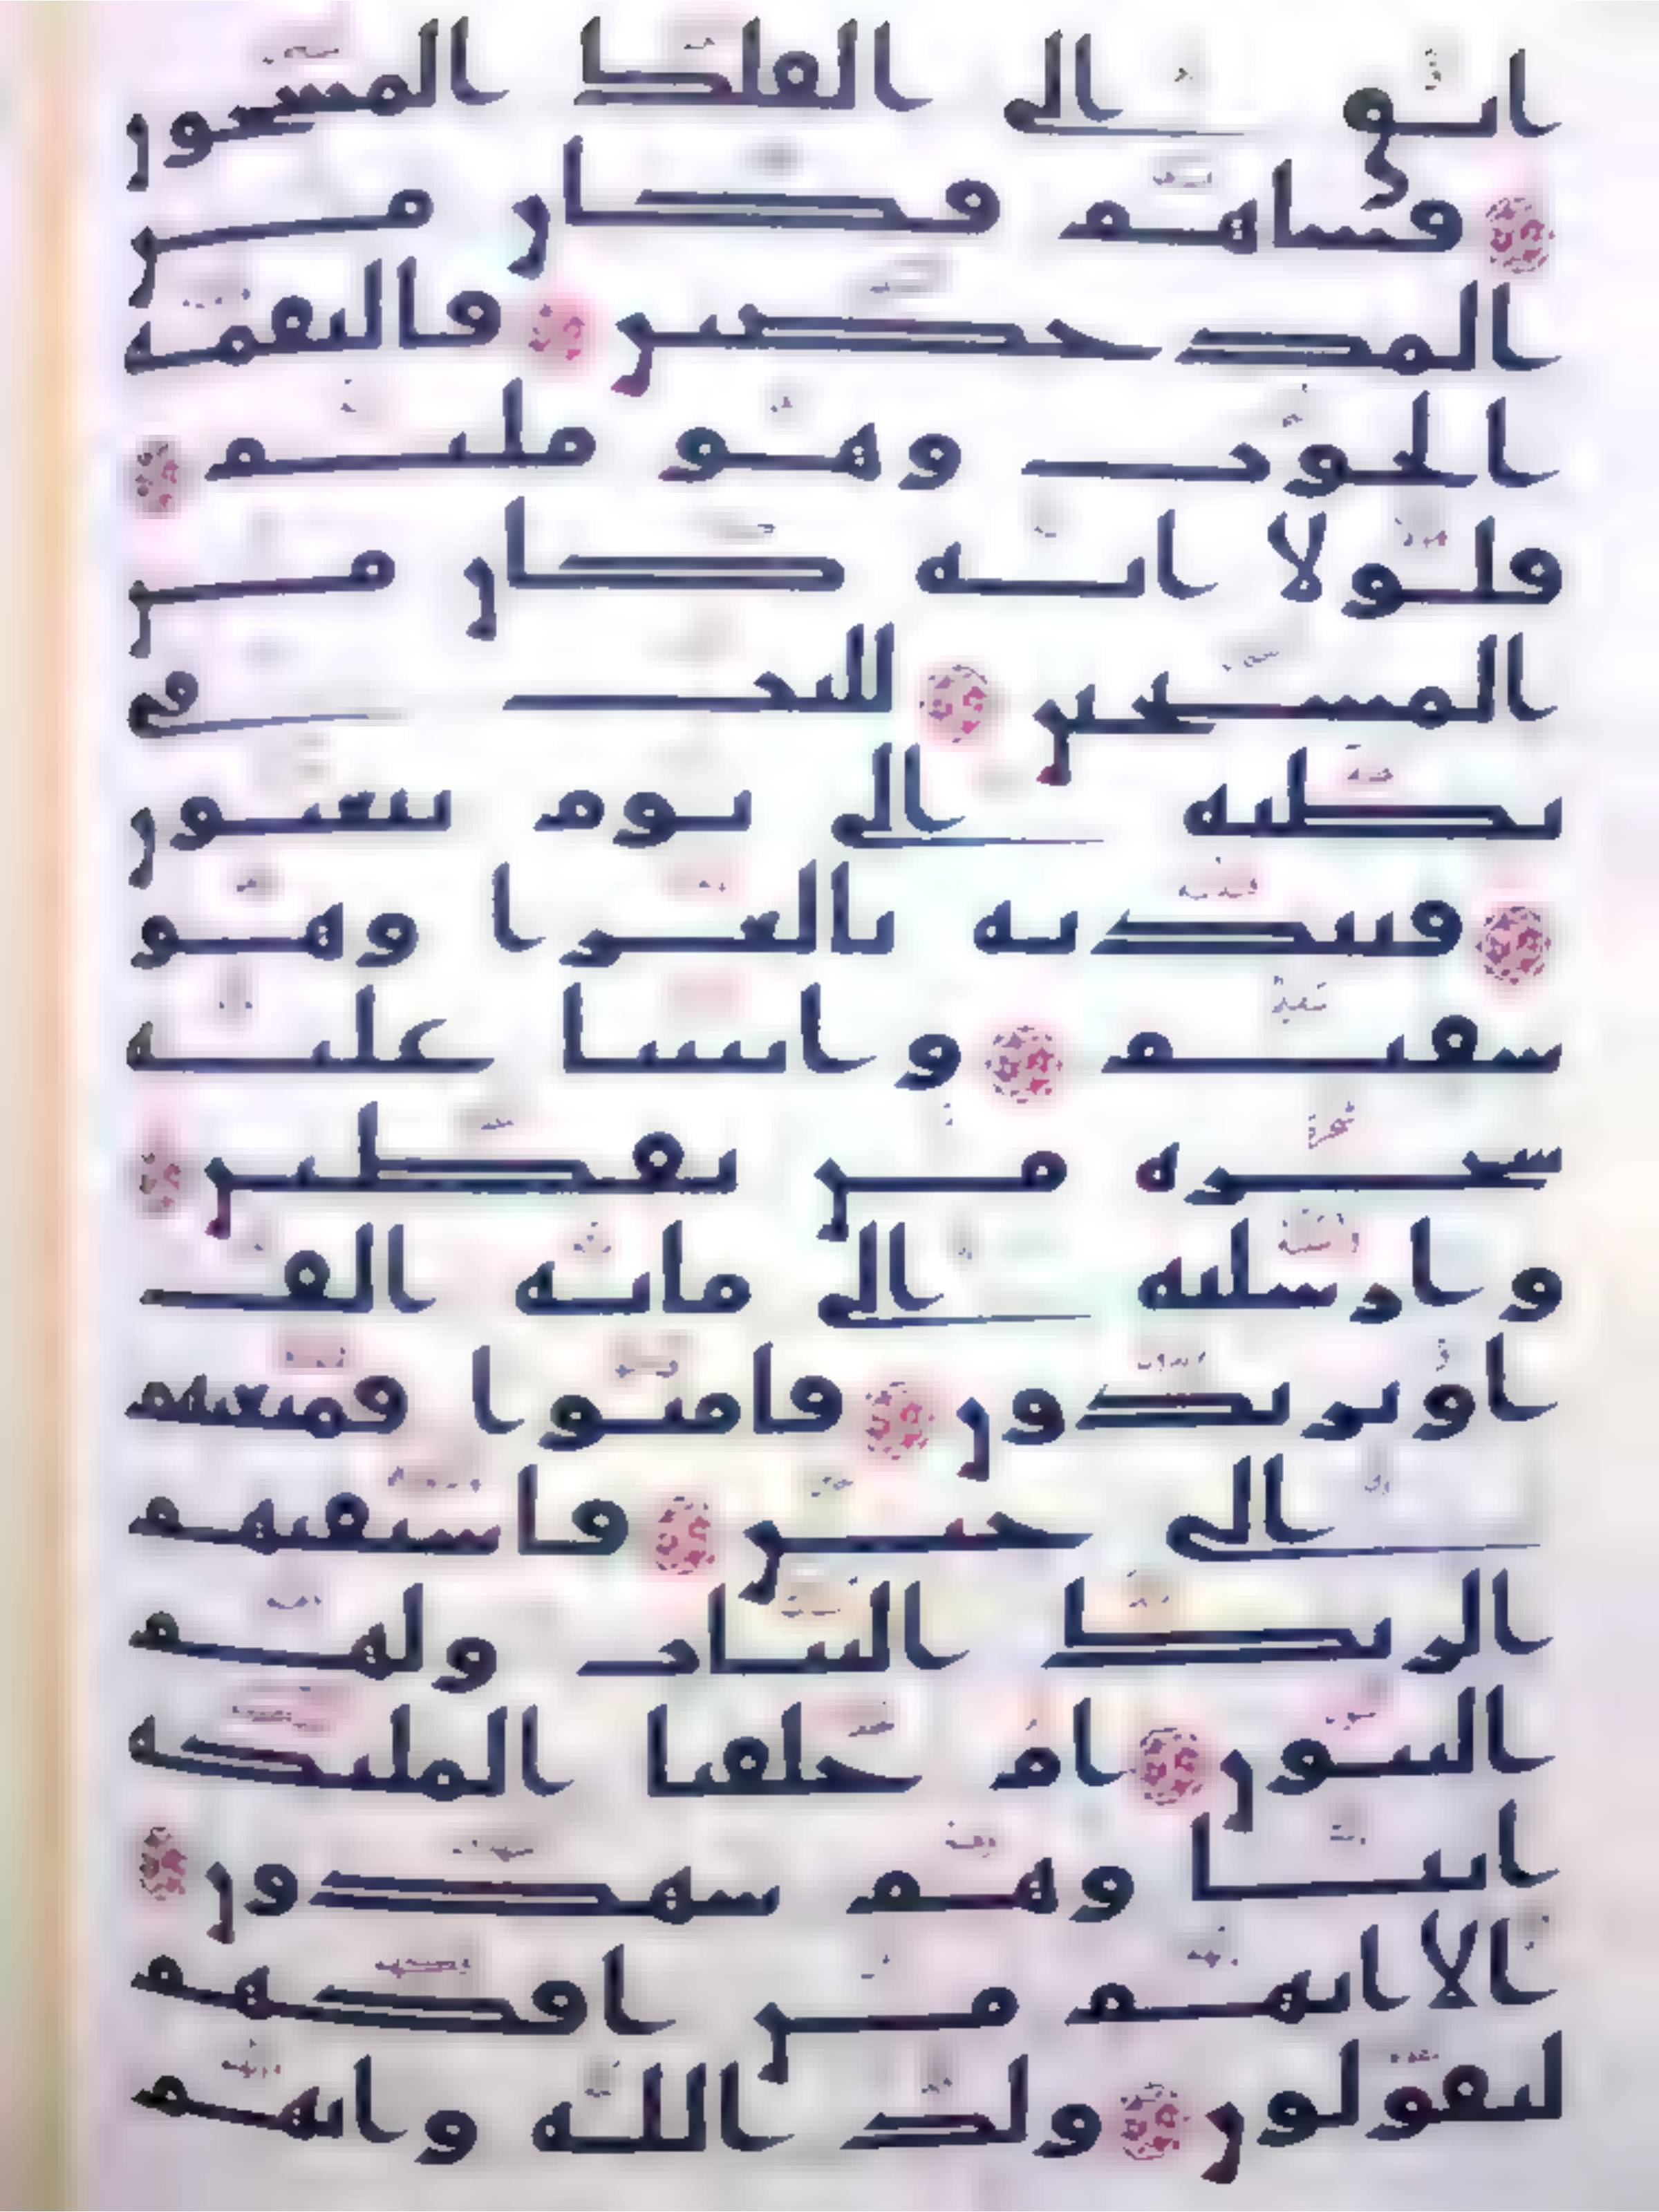 ابق الى الفلك المشحون
فساهم فكان من
المدحضين فالتقمه
الحوت وهو مليم
فلولا انه كان من
المسبحين للبث في
بطنه الى يوم يبعثون
فنبذنه بالعرا وهو
سقيم وانبتنا عليه
شجره من يقطين
وارسلنه الى مائه الف
او يزيدون فامنوا فمتعنهم
الى حين فاستفتهم
الربك البنات ولهم
البنون ام خلقنا الملئكه
انثا وهم شهدون
الا انهم من افكهم
ليقولون ولد الله وانهم